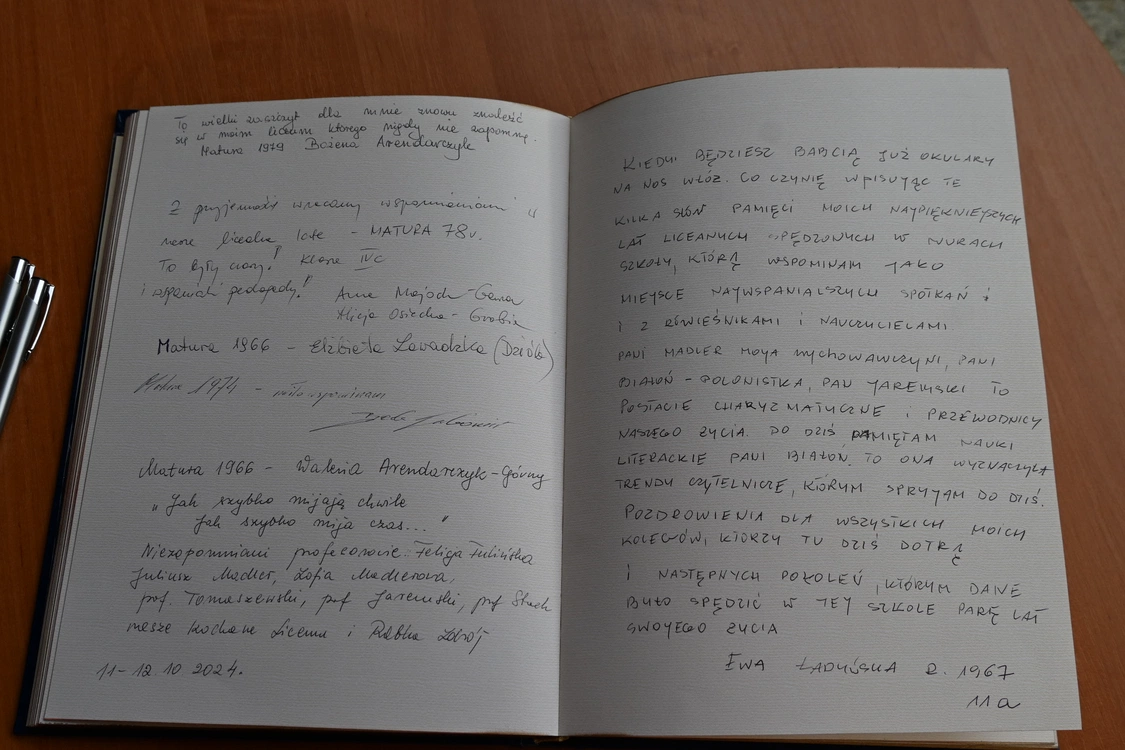 To wielki zaszczyt dla mnie znowu znaleźć
się w moim liceum którego nigdy nie zapomnę.
Matura 1979 Bożena Arendarczyk
Z przyjemnością wracamy wspomnieniami w
nasze licealne lata - MATURA 78r.
To były czasy! Klasa IVc
i wspaniali pedagodzy!
Anna Majoch-Gawa
Alicja Osiecka-Grobia
Matura 1966 - Elżbieta Lavadzka (Dziób)
Matura 1974 - miło wspominam
Matura 1966 - Waleria Arendarczyk-Górny
"Jak szybko mijają chwile
Jak szybko mija czas..."
Niezapomniani profesorowie: Feliga Fulińska
Juliusz Madler, Zofia Madlerova,
prof. Tomaszewski, prof Jaremski, prof Stach
nasze kochane Liceum i Rabka Zdrój
11-12.10.2024.
KIEDYŚ BĘDZIESZ BABCIĄ JUŻ OKULARY
NA NOS WŁÓŻ. CO CZYNIĘ WPISUJĄC TE
KILKA SŁÓW PAMIĘCI MOICH NAJPIĘKNIEJSZYCH
LAT LICEALNYCH SPĘDZONYCH W MURACH
SZKOŁY, KTÓRĄ WSPOMINAM JAKO
MIEJSCE NAJWSPANIALSZYCH SPOTKAŃ i
I Z RÓWIEŚNIKAMI I NAUCZYCIELAMI
PANI MADLER MOJA WYCHOWAWCZYNI, PANI
BIAŁOŃ - POLONISTKA, PAN JAREMSKI TO
POSTACIE CHARYZMATYCZNE I PRZEWODNICY
NASZEGO ŻYCIA. DO DZIŚ PAMIĘTAM NAUKI
LITERACKIE PANI BIAŁOŃ. TO ONA WYZNACZYŁA
TRENDY CZYTELNICZE, KTÓRYM SPRYJAM DO DZIŚ.
POZDROWIENIA DLA WSZYSTKICH MOICH
KOLEGÓW, KTÓRZY TU DZIŚ DOTRĄ
I NASTĘPNYCH POKOLEŃ, KTÓRYM DANE
BYŁO SPĘDZIĆ W TEJ SZKOLE PARĘ LAT
SWOJEGO ŻYCIA
EWA ŁADYŃSKA R. 1967
11a